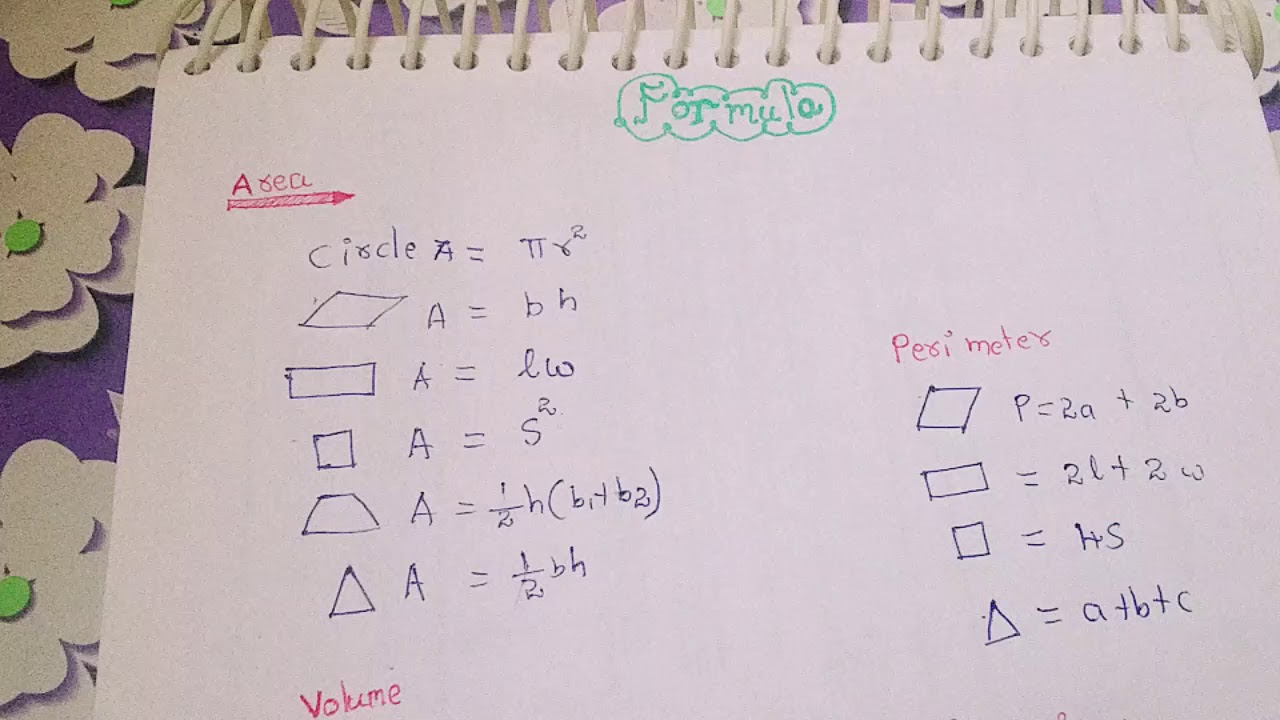 Formula
Area
Circle A = πr²
A = bh
A = lw
A = S²
A = 1/2 h(b1+b2)
A = 1/2 bh
Perimeter
P=2a + 2b
= 2l+2w
= 4S
= a+b+c
Volume